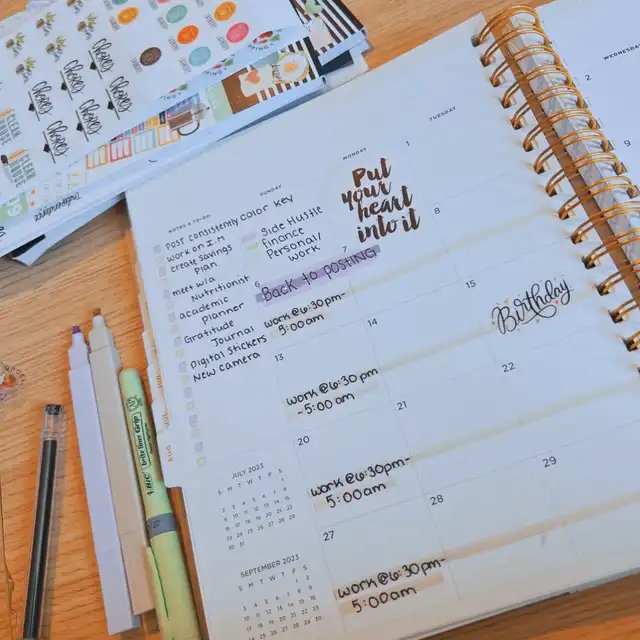 Cheers
Cheers
Cheers
Cheers
Independence
WEDNESDAY
TUESDAY
MONDAY
SUNDAY
NOTES & TO-DO:
Post consistently
work on I.M
create savings
plan
meet w/a
Nutritionist
academic
Planner
Gratitude
Journal
Digital stickers
New camera
color key
Side Hustle
Finance
Personal/
work
Put
your
heart
into it
1
2
6
7
8
9
Back to posting
work @ 6:30pm-
:00am
13
14
15
Birthday
work @ 6:30 pm
-5:00am
20
21
22
work @ 6:30pm-
5:00am
27
28
29
work @ 6:30pm-
5:00am
AUG
JULY 2023
S M T W T F S
SEPTEMBER 2023
S M T W T F S
BIC